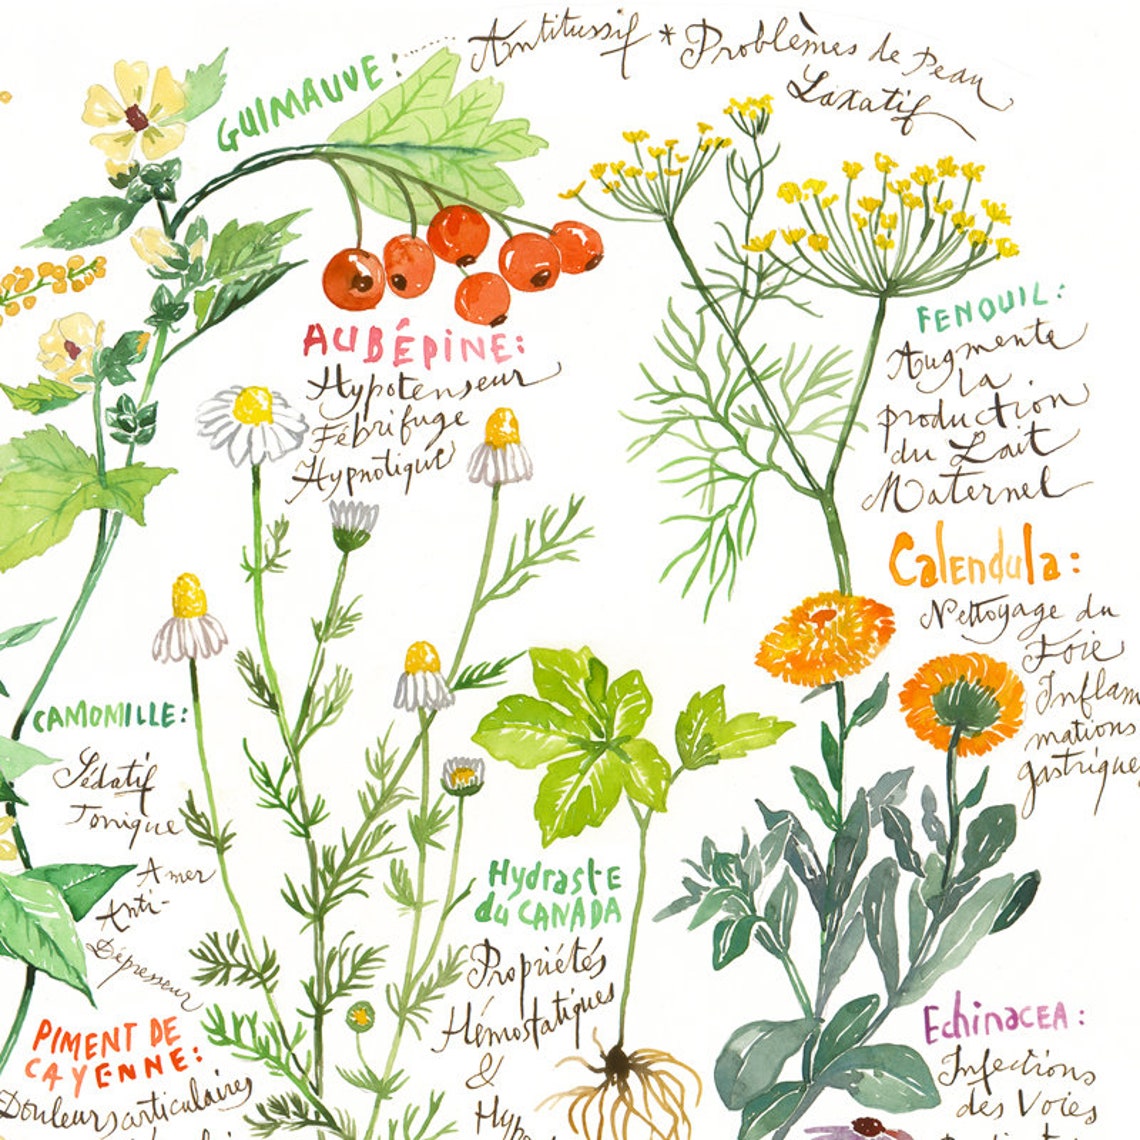 GUIMAUVE: Antitussif * Problèmes de Peau
Laxatif
AUBÉPINE:
Hypotenseur
Fébrifuge
Hypnotique
FENOUIL:
Augmente
la
production
du Lait
Maternel
Calendula:
Nettoyage du
Foie
Inflam
mations
gastrique
CAMOMILLE:
Sédatif
Tonique
Amer
Anti-
Dépresseur
Hydraste
du CANADA
Propriétés
Hémostatiques
&
Hypo
PIMENT DE
CAYENNE:
Douleurs articulaires
Echinacea:
Infections
des Voies